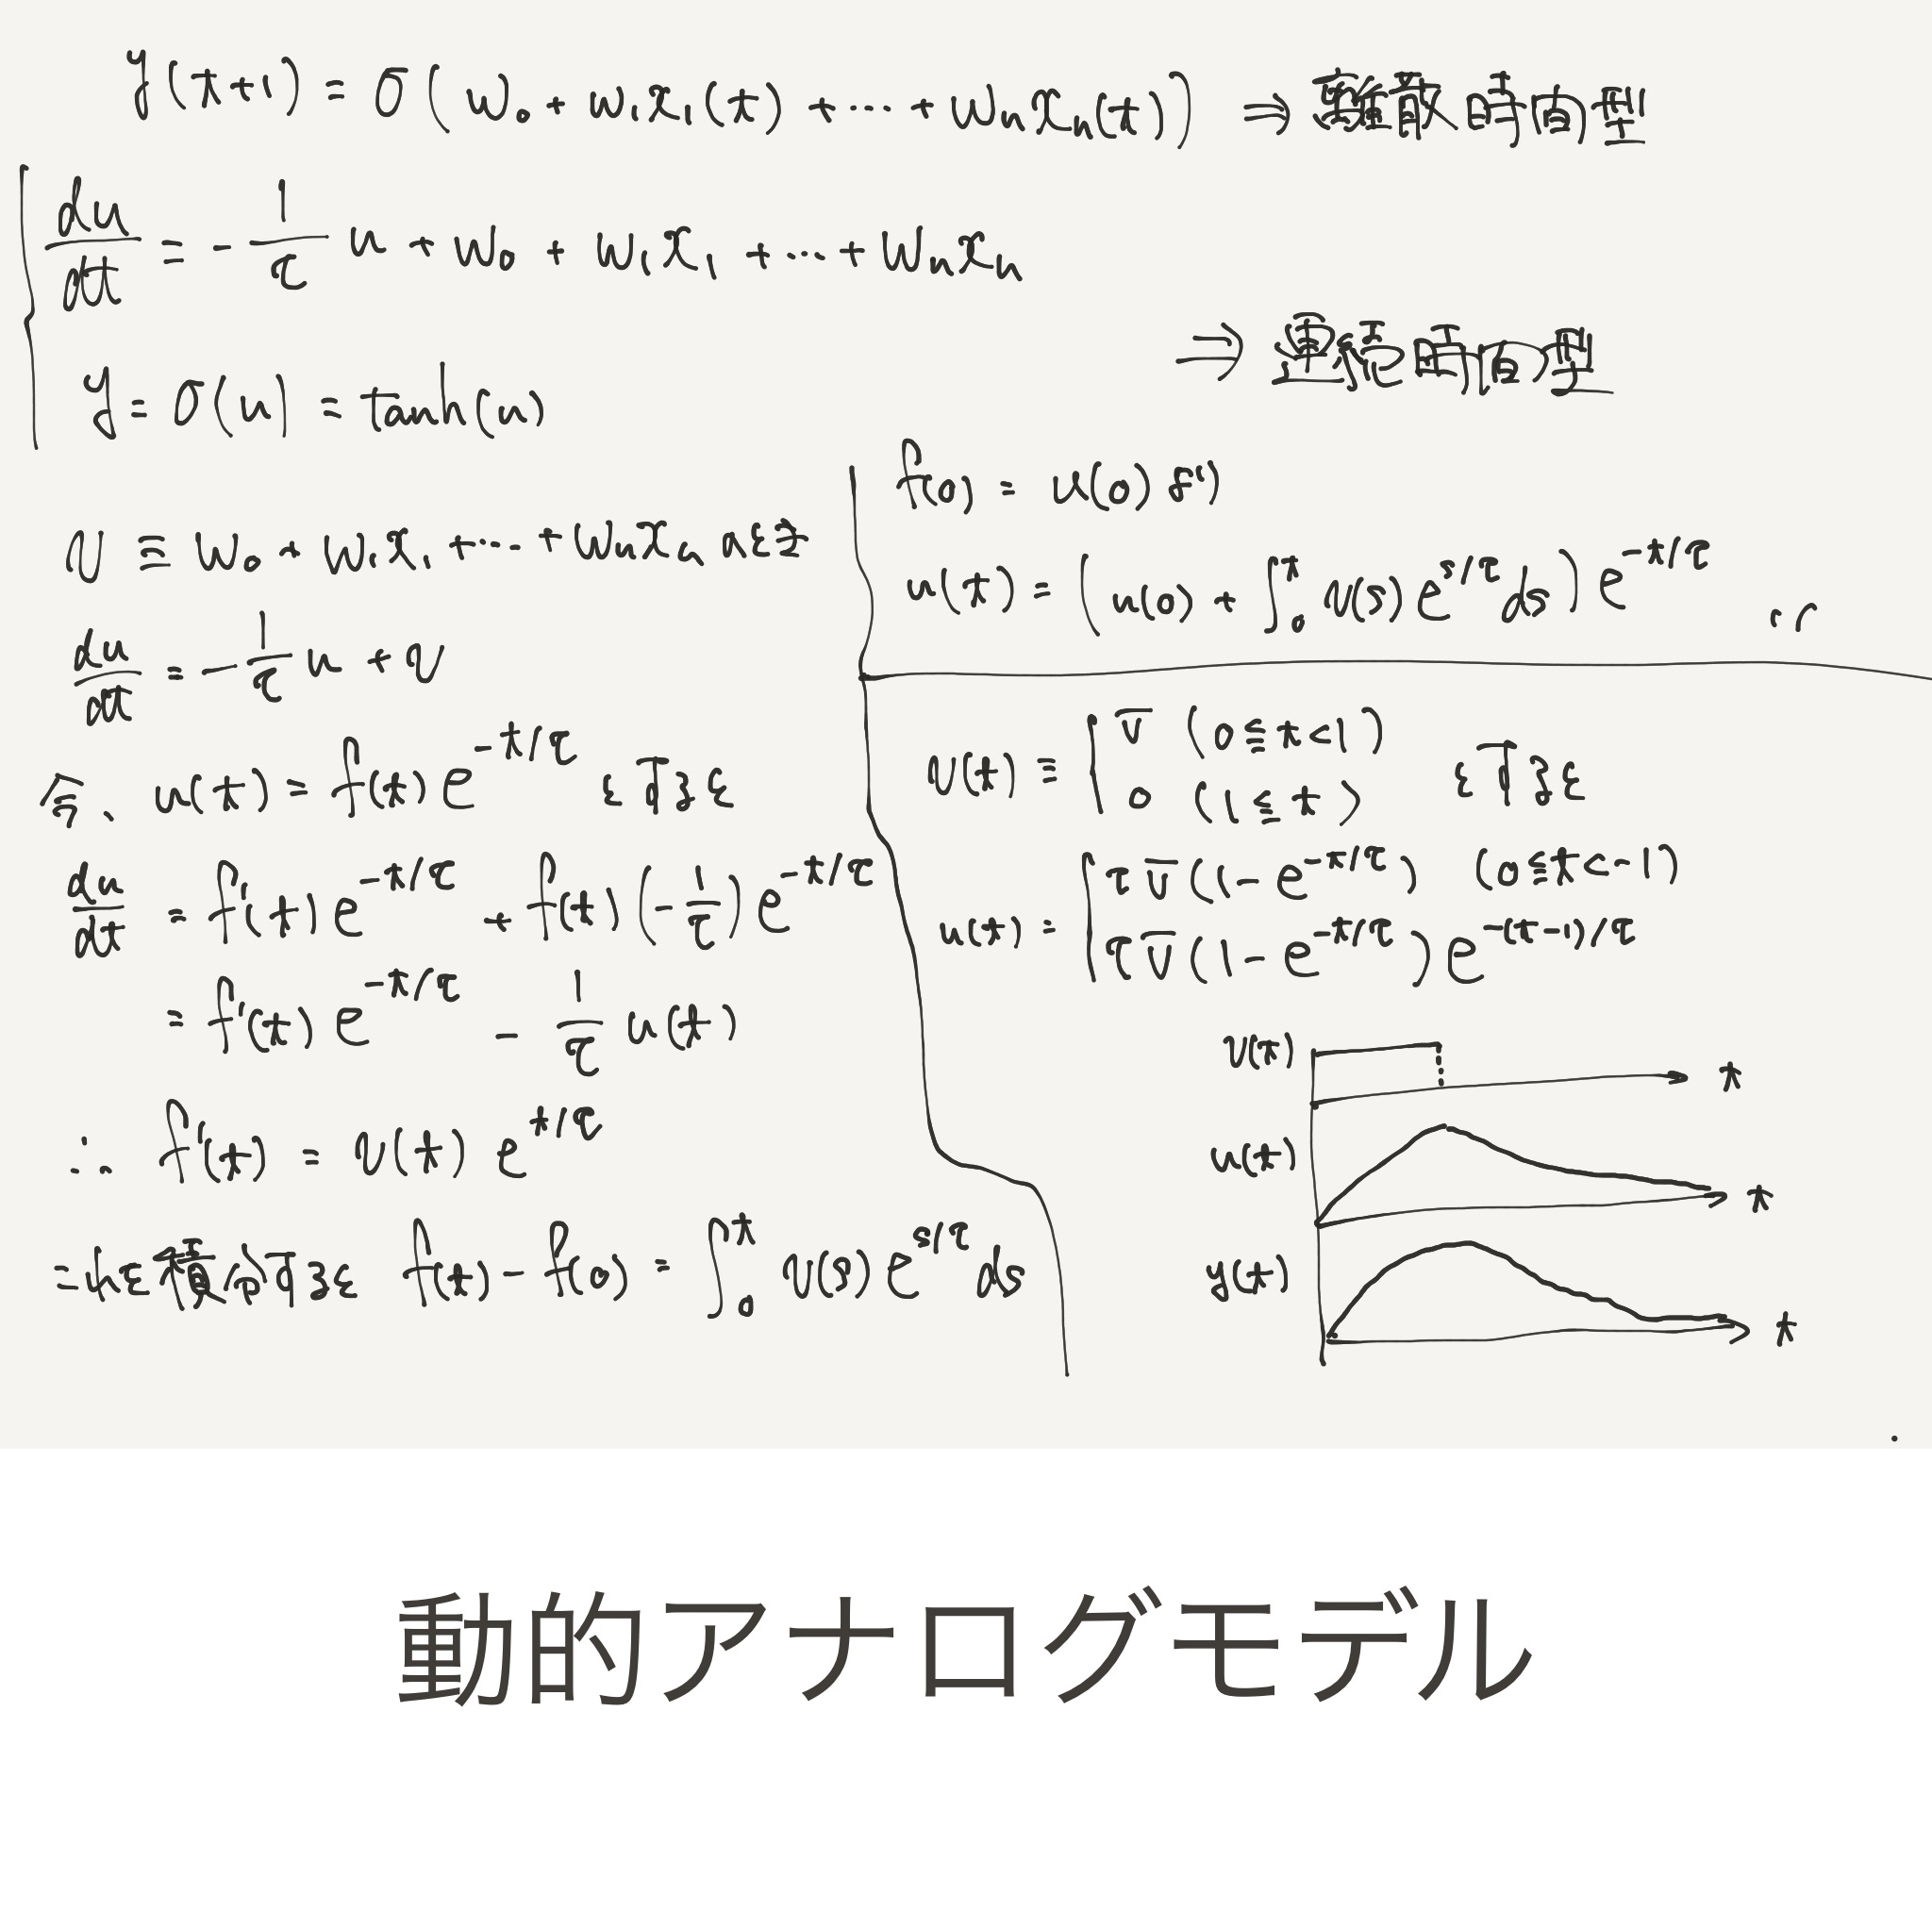 y(t+1) = σ(w₀ + w₁x₁(t) + ⋯ + wₙxₙ(t)) ⇒ 離散時間型
du/dt = -1/τ u + w₀ + w₁x₁ + ⋯ + wₙxₙ
y = σ(u) = tanh(u)
⇒ 連続時間型
v ≡ w₀ + w₁x₁ + ⋯ + wₙxₙ のとき
du/dt = -1/τ u + v
今、u(t) = f(t) e^{-t/τ} とすると
du/dt = f'(t) e^{-t/τ} + f(t) (-1/τ) e^{-t/τ}
= f'(t) e^{-t/τ} - 1/τ u(t)
∴ f'(t) = v(t) e^{t/τ}
これを積分すると f(t) - f(0) = ∫₀ᵗ v(s) e^{s/τ} ds
f(0) = u(0) より
u(t) = (u(0) + ∫₀ᵗ v(s) e^{s/τ} ds) e^{-t/τ}
v(t) ≡ { v̄ (0≦t<1)
0 (1≦t) とすると
u(t) = { τv̄(1-e^{-t/τ}) (0≦t<-1)
τv̄(1-e^{-t/τ}) e^{-(t-1)/τ}
v(t) t
u(t) t
y(t) t
動的アナログモデル